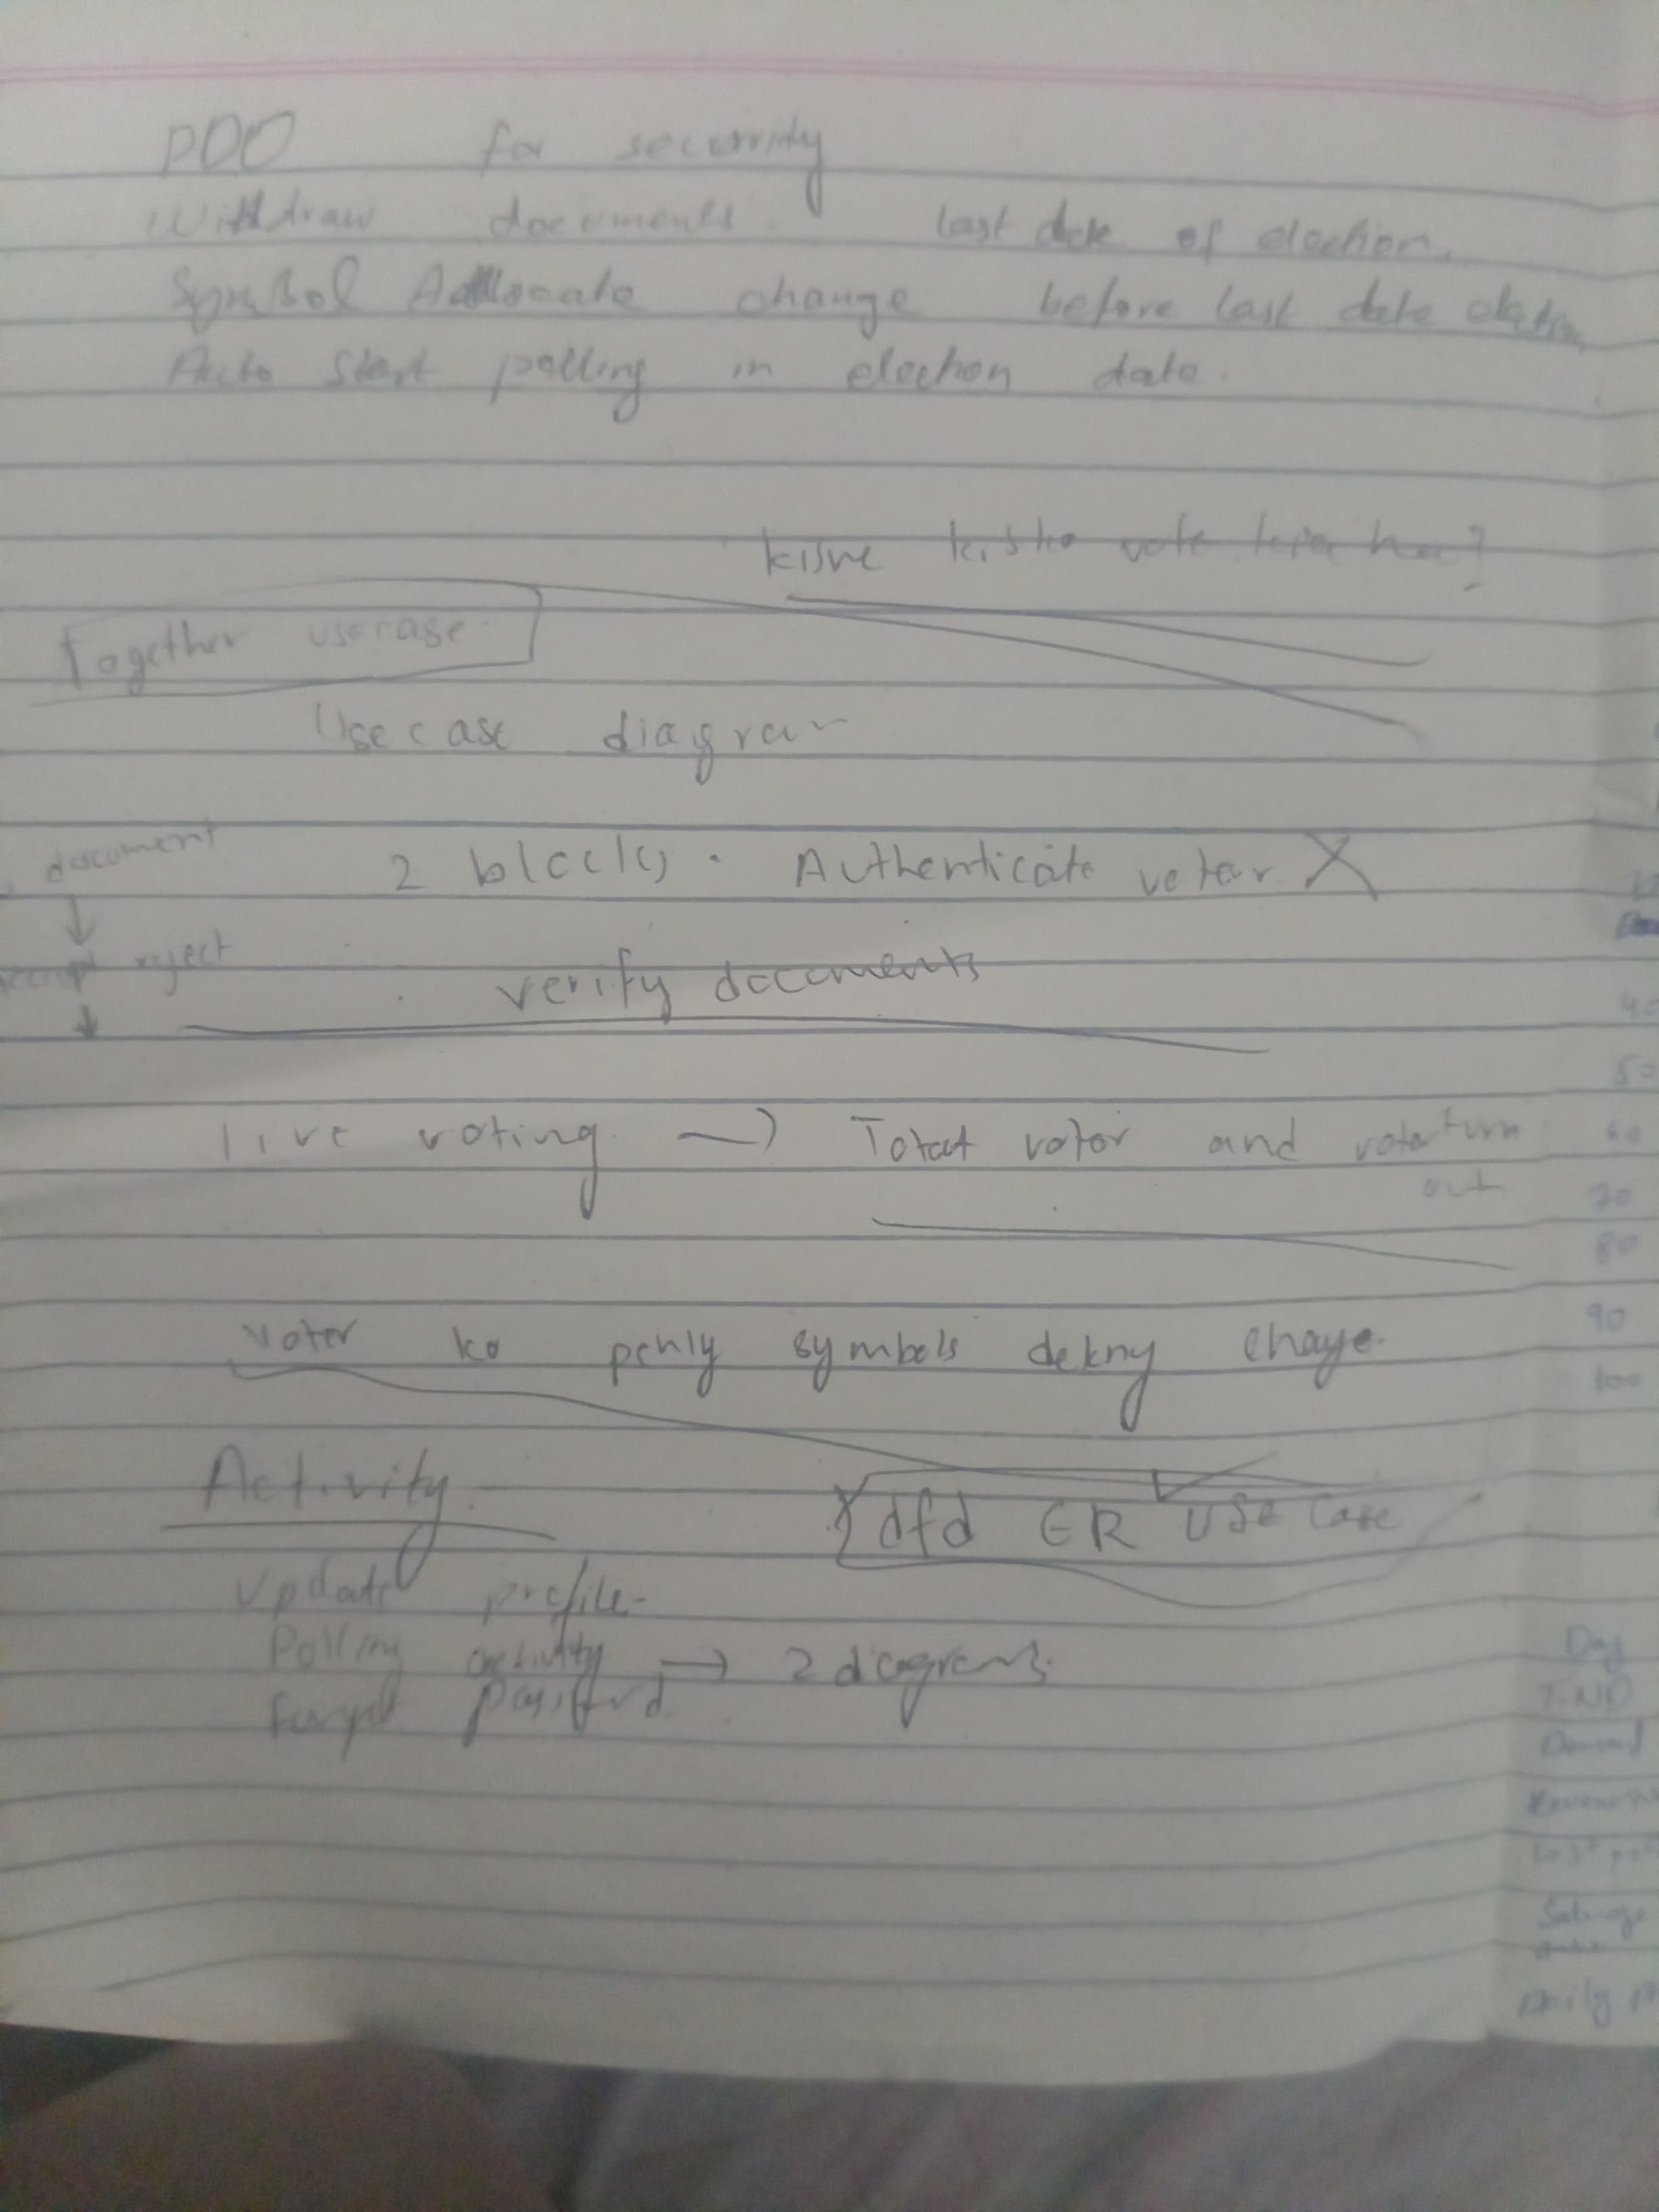 PDO for security
Withdraw documents last date of election.
Symbol Allocate change before last date
Auto Start polling in election date.
kisne kisko vote kia ha?
Together usecase
Usecase diagram
document
2 blocks. Authenticate voter X
reject
verify documents
live voting → Total voter and voter turn
out
voter ko pehly symbols dekny chaye.
Activity
dfd ER use case
Update profile
Polling activity → 2 diagrams.
Forget password
70
80
90
100
Day
Daily